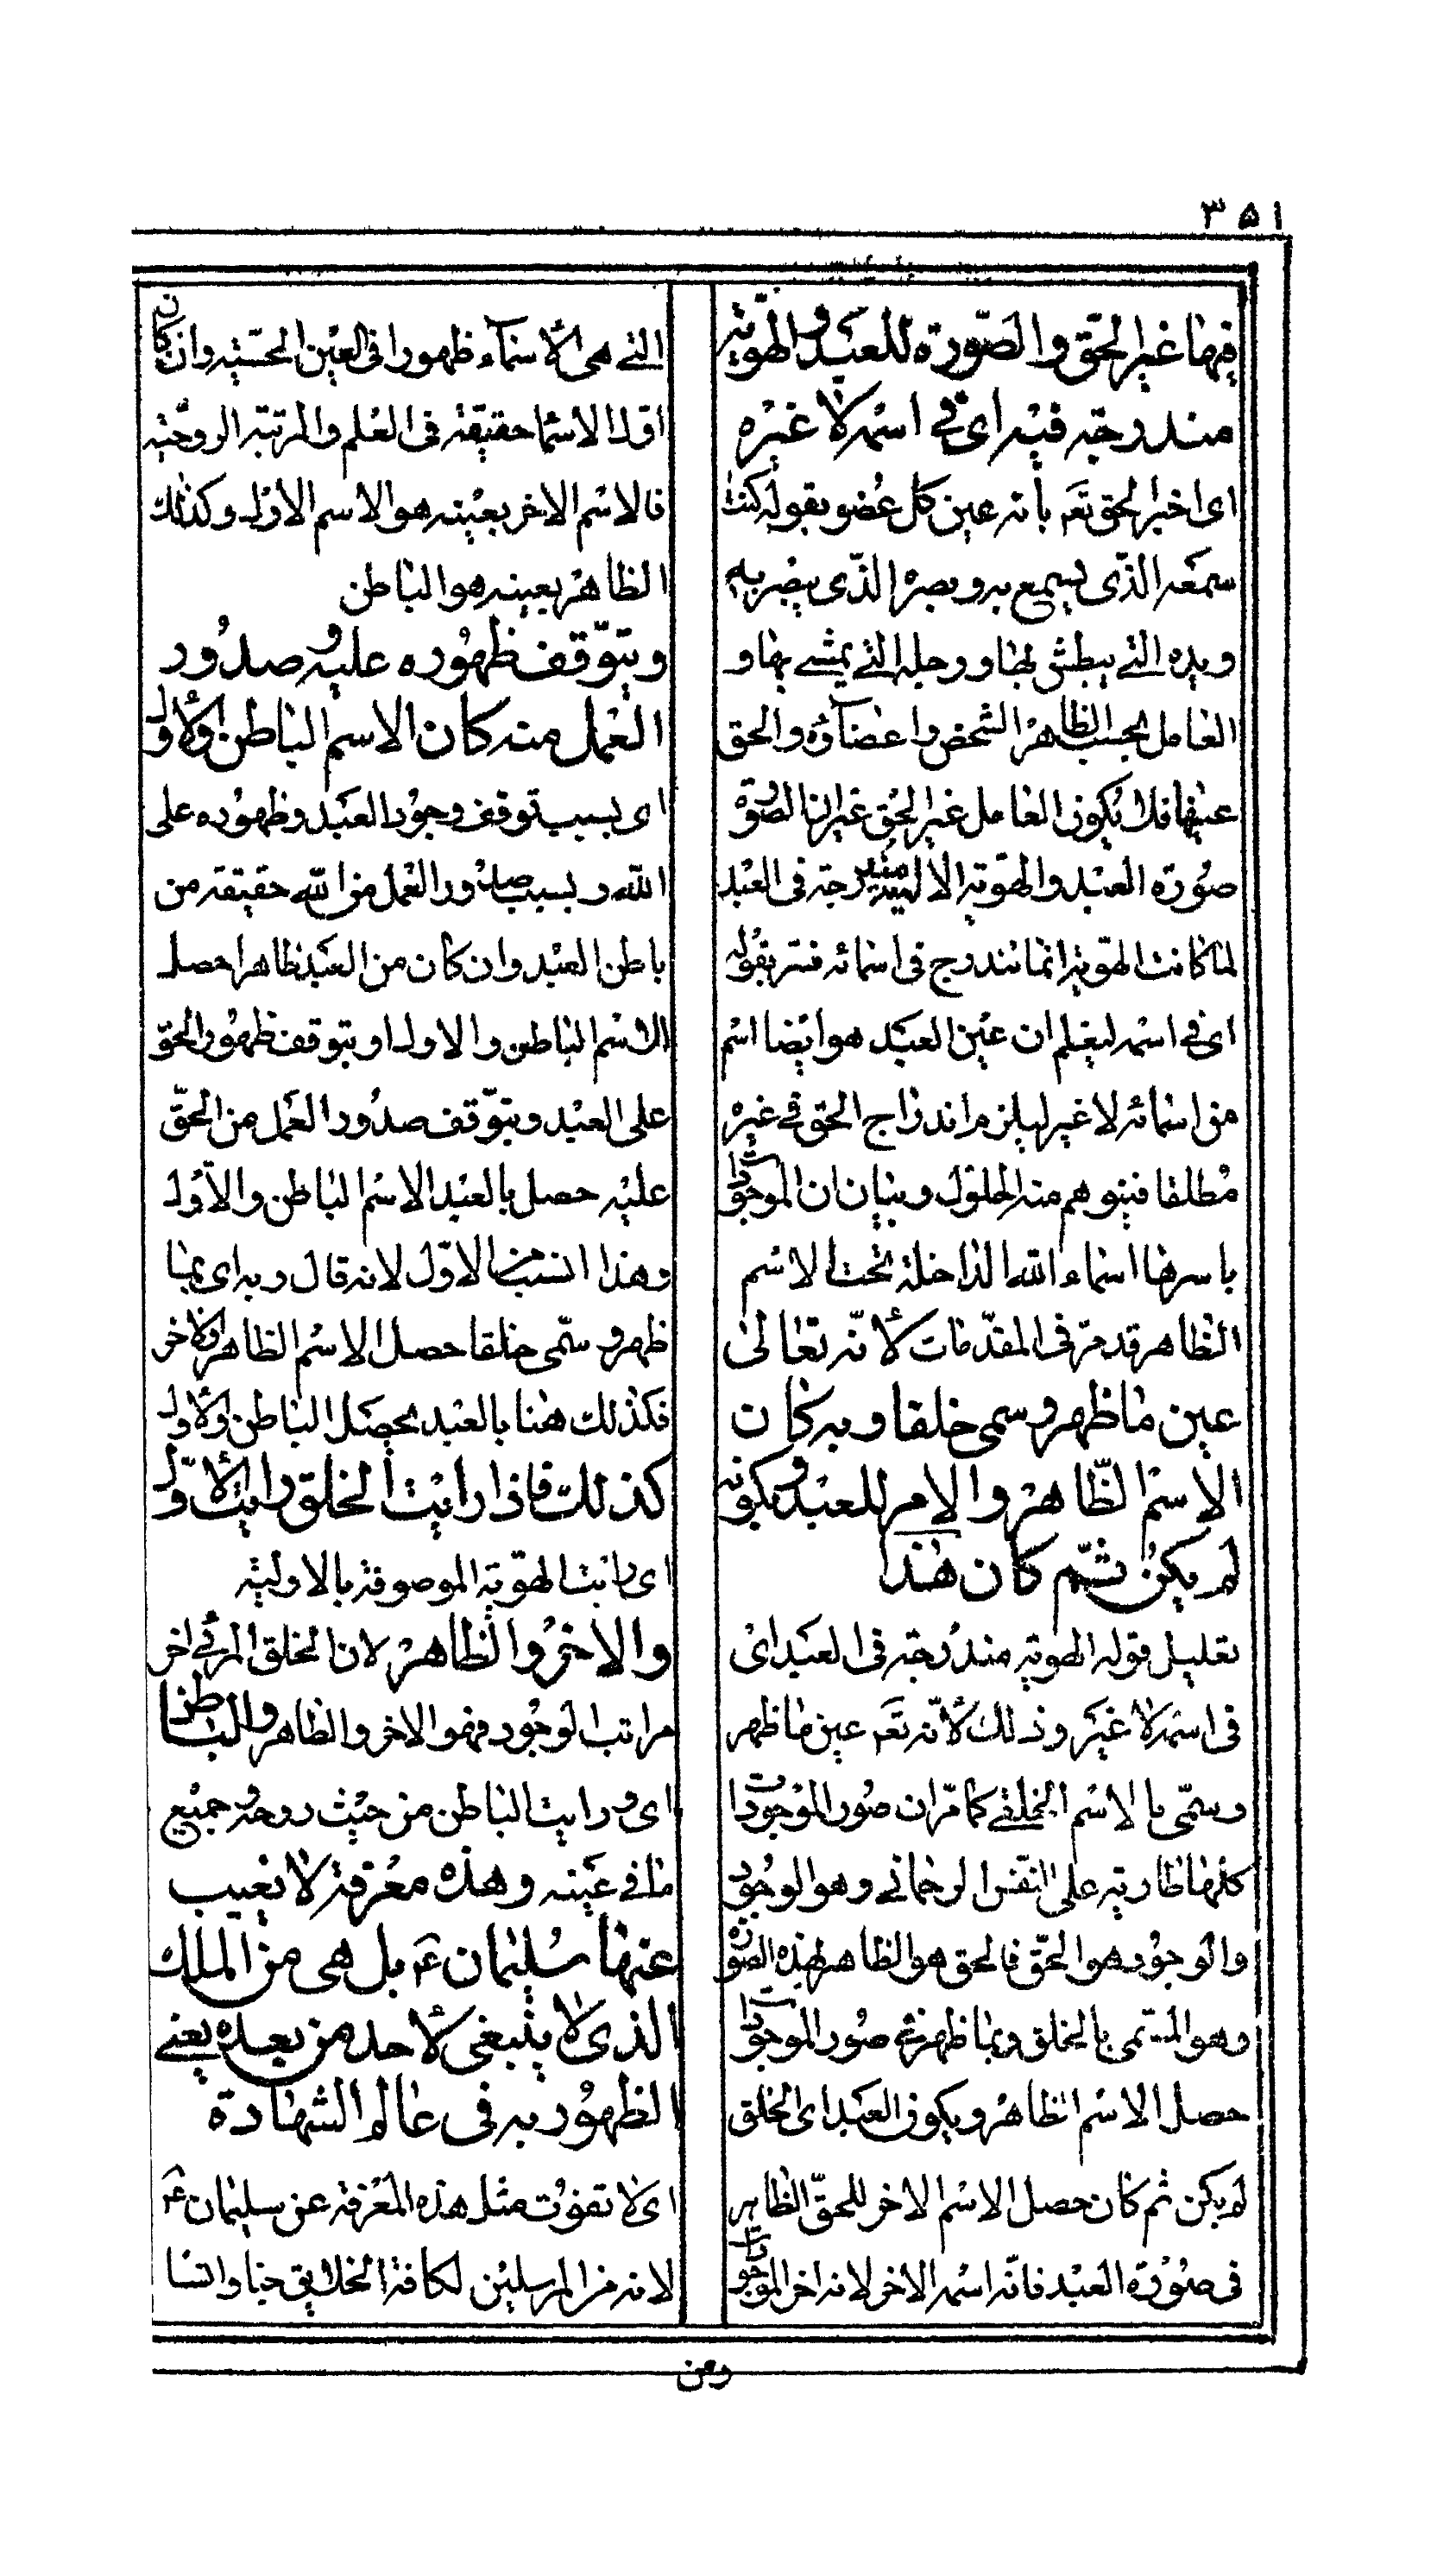 ٣٥١
فيها غير الحقّ والصّورة للعبد والهويّة
مندرجة فيه اى فى اسمه لا غيره
اى اخبر الحق تعَم بانه عين كل عضو بقوله كنت
سمعه الذّى يسمع به وبصره الذّى يبصر به
ويده التى يبطش بها ورجله التى يمشى بها و
العامل بحسب الظاهر الشخص واعضاؤه والحق
عينها فلا يكون العامل غير الحق غير ان الصورة
صورة العبد والهويّة الالهية مندرجة فى العبد
لما كانت الهويّة انما تندرج فى اسمائه فسّر بقوله
اى فى اسمه ليعلم ان عين العبد هو ايضا اسم
من اسمائه لا غير ليلزم اندراج الحق فى غيره
مطلقا فيتوهم منه الحلول وبيان ان الموجودات
باسرها اسماء الله الداخلة تحت الاسم
الظاهر قد مرّ فى المقدّمات لأنّه تعالى
عين ما ظهر وسمى خلقا وبه كان
الاسم الظّاهر والاٰخر للعبد وبكونه
لم يكن ثمّ كان هذا
تعليل قوله الهوية مندرجة فى العبد اى
فى اسمه لا غير وذلك لأنّه تعَم عين ما ظهر
وسمّى بالاسم الخلقى كما مرّ ان صور الموجودات
كلّها طارية على النفس الرحمانى وهو الوجود
والوجود هو الحقّ فالحق هو الظاهر بهذه الصورة
وهو المسمّى بالخلق وبما ظهر فى صور الموجودات
حصل الاسم الظاهر وبكون العبد اى الخلق
لم يكن ثم كان حصل الاسم الاخر للحقّ الظاهر
فى صورة العبد فانّه اسمه الاخر لانه اخر الموجودات
التى هى الأسماء ظهورا فى العين الحسّيه وان كان
اوّل الاسما حقيقة فى العلم والمرتبة الروحيّة
فالاسم الاخر بعينه هو الاسم الاوّل وكذلك
الظاهر بعينه هو الباطن
وبتوّقف ظهوره عليه وصدور
العمل منه كان الاسم الباطن والأول
اى بسبب توقف وجود العبد وظهوره على
الله وبسبب صدور العمل من الله حقيقة من
باطن العبد وان كان من العبد ظاهرا حصل
الاسم الباطن والاول او بتوقف ظهور الحق
على العبد وبتوّقف صدور العمل من الحقّ
عليه حصل بالعبد الاسم الباطن والأوّل
وهذا انسب من الاوّل لانه قال وبه اى بما
ظهر وسمّى خلقا حصل الاسم الظاهر والاخر
فكذلك هنا بالعبد يحصل الباطن والاول
كذلك فاذا رايت الخلق رايت الأوّل
اى رايت الهويّة الموصوفة بالاولية
والاخر والظاهر لان الخلق المرئى اخر
مراتب الوجود فهو الاخر والظاهر والباطن
اى ورايت الباطن من حيث روحه وجميع
ما فى غيبه وهذه معرفة لا يغيب
عنها سليمان عَ بل هى من الملك
الذى لا ينبغى لأحد من بعده يعنى
الظهور به فى عالم الشهادة
اى لا تفوت مثل هذه المعرفة عن سليمان عَ
لانه من المرسلين لكافة الخلايق جنا وانسا
ومن